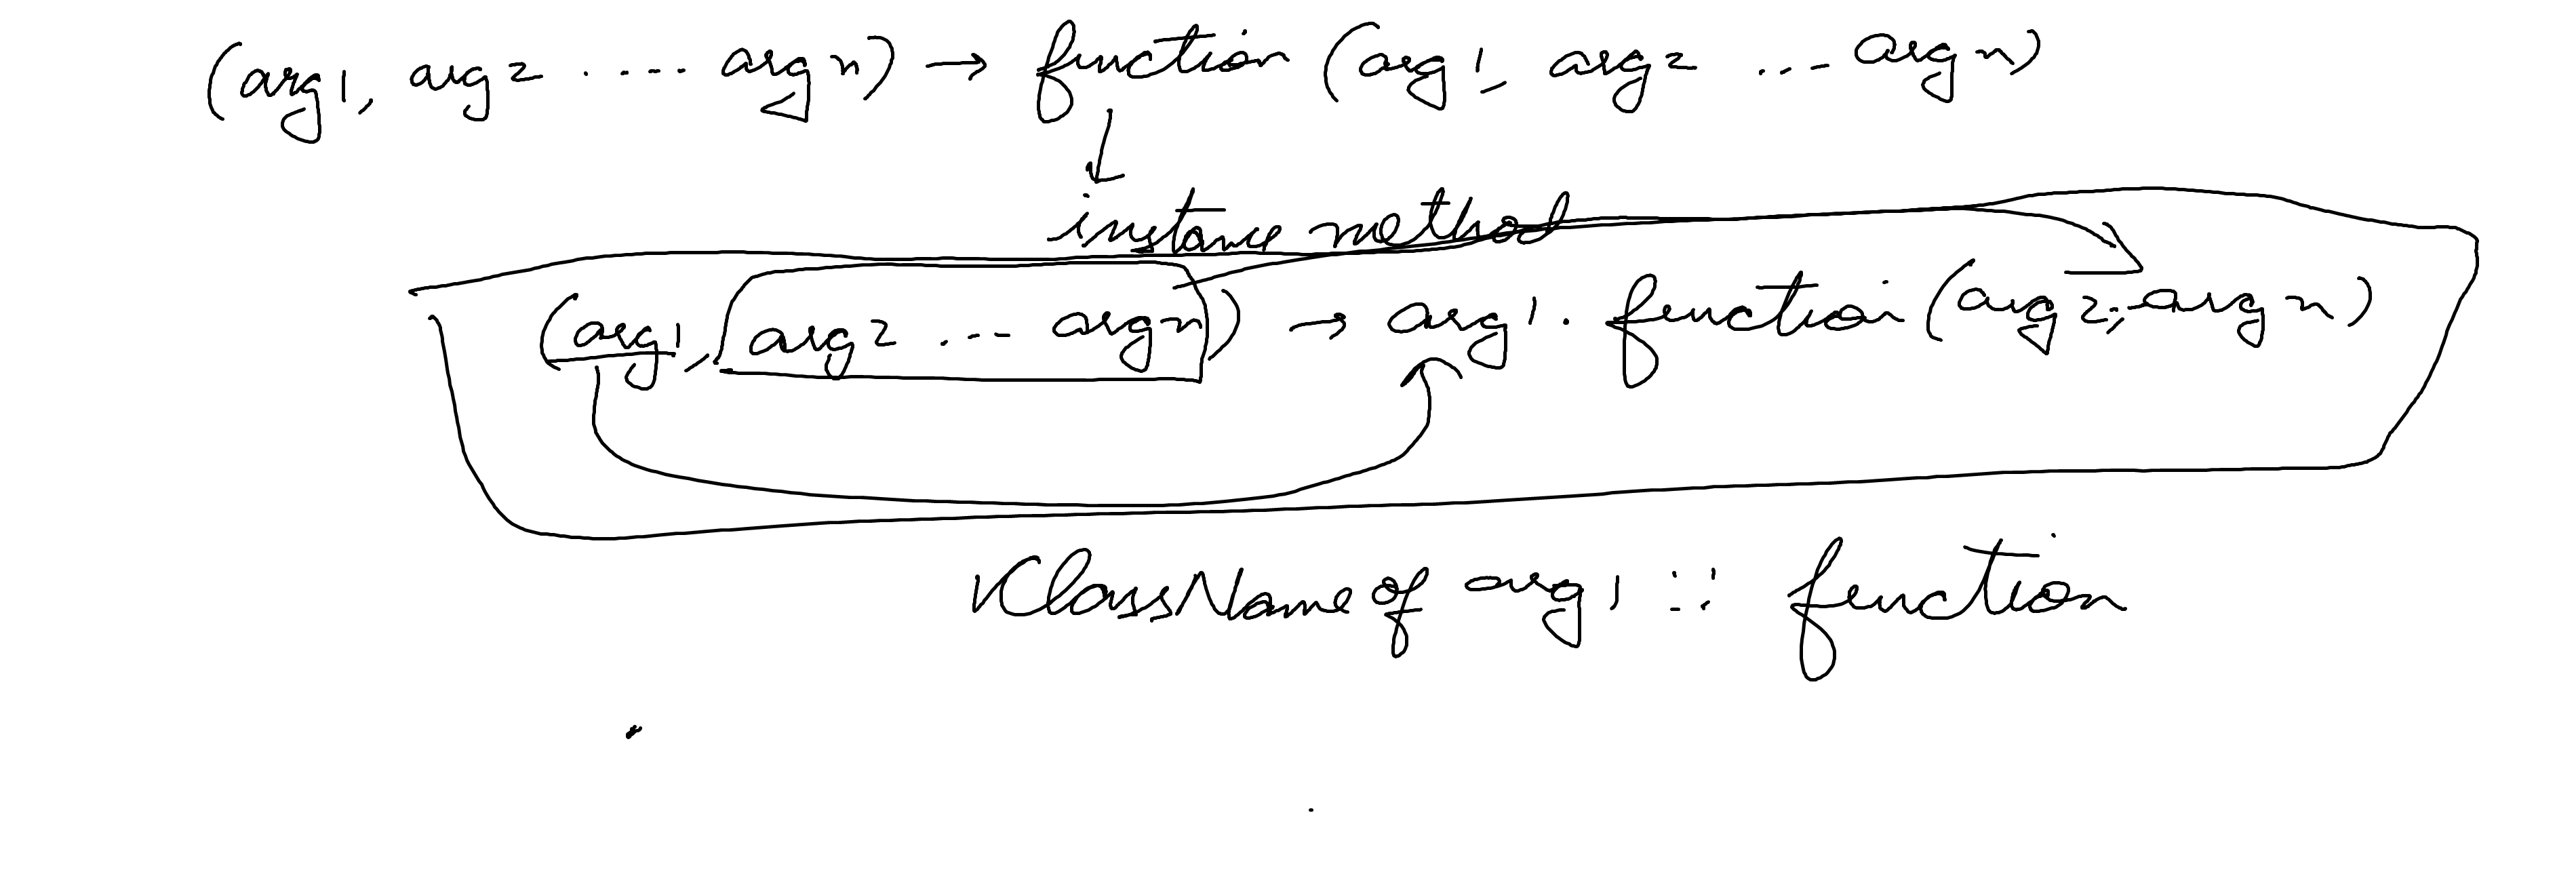 (arg1, arg2 ..... argn) → function (arg1, arg2 ... argn)
↓
instance method
(arg1, arg2 ... argn) → arg1. function (arg2, argn)
ClassName of arg1 :: function